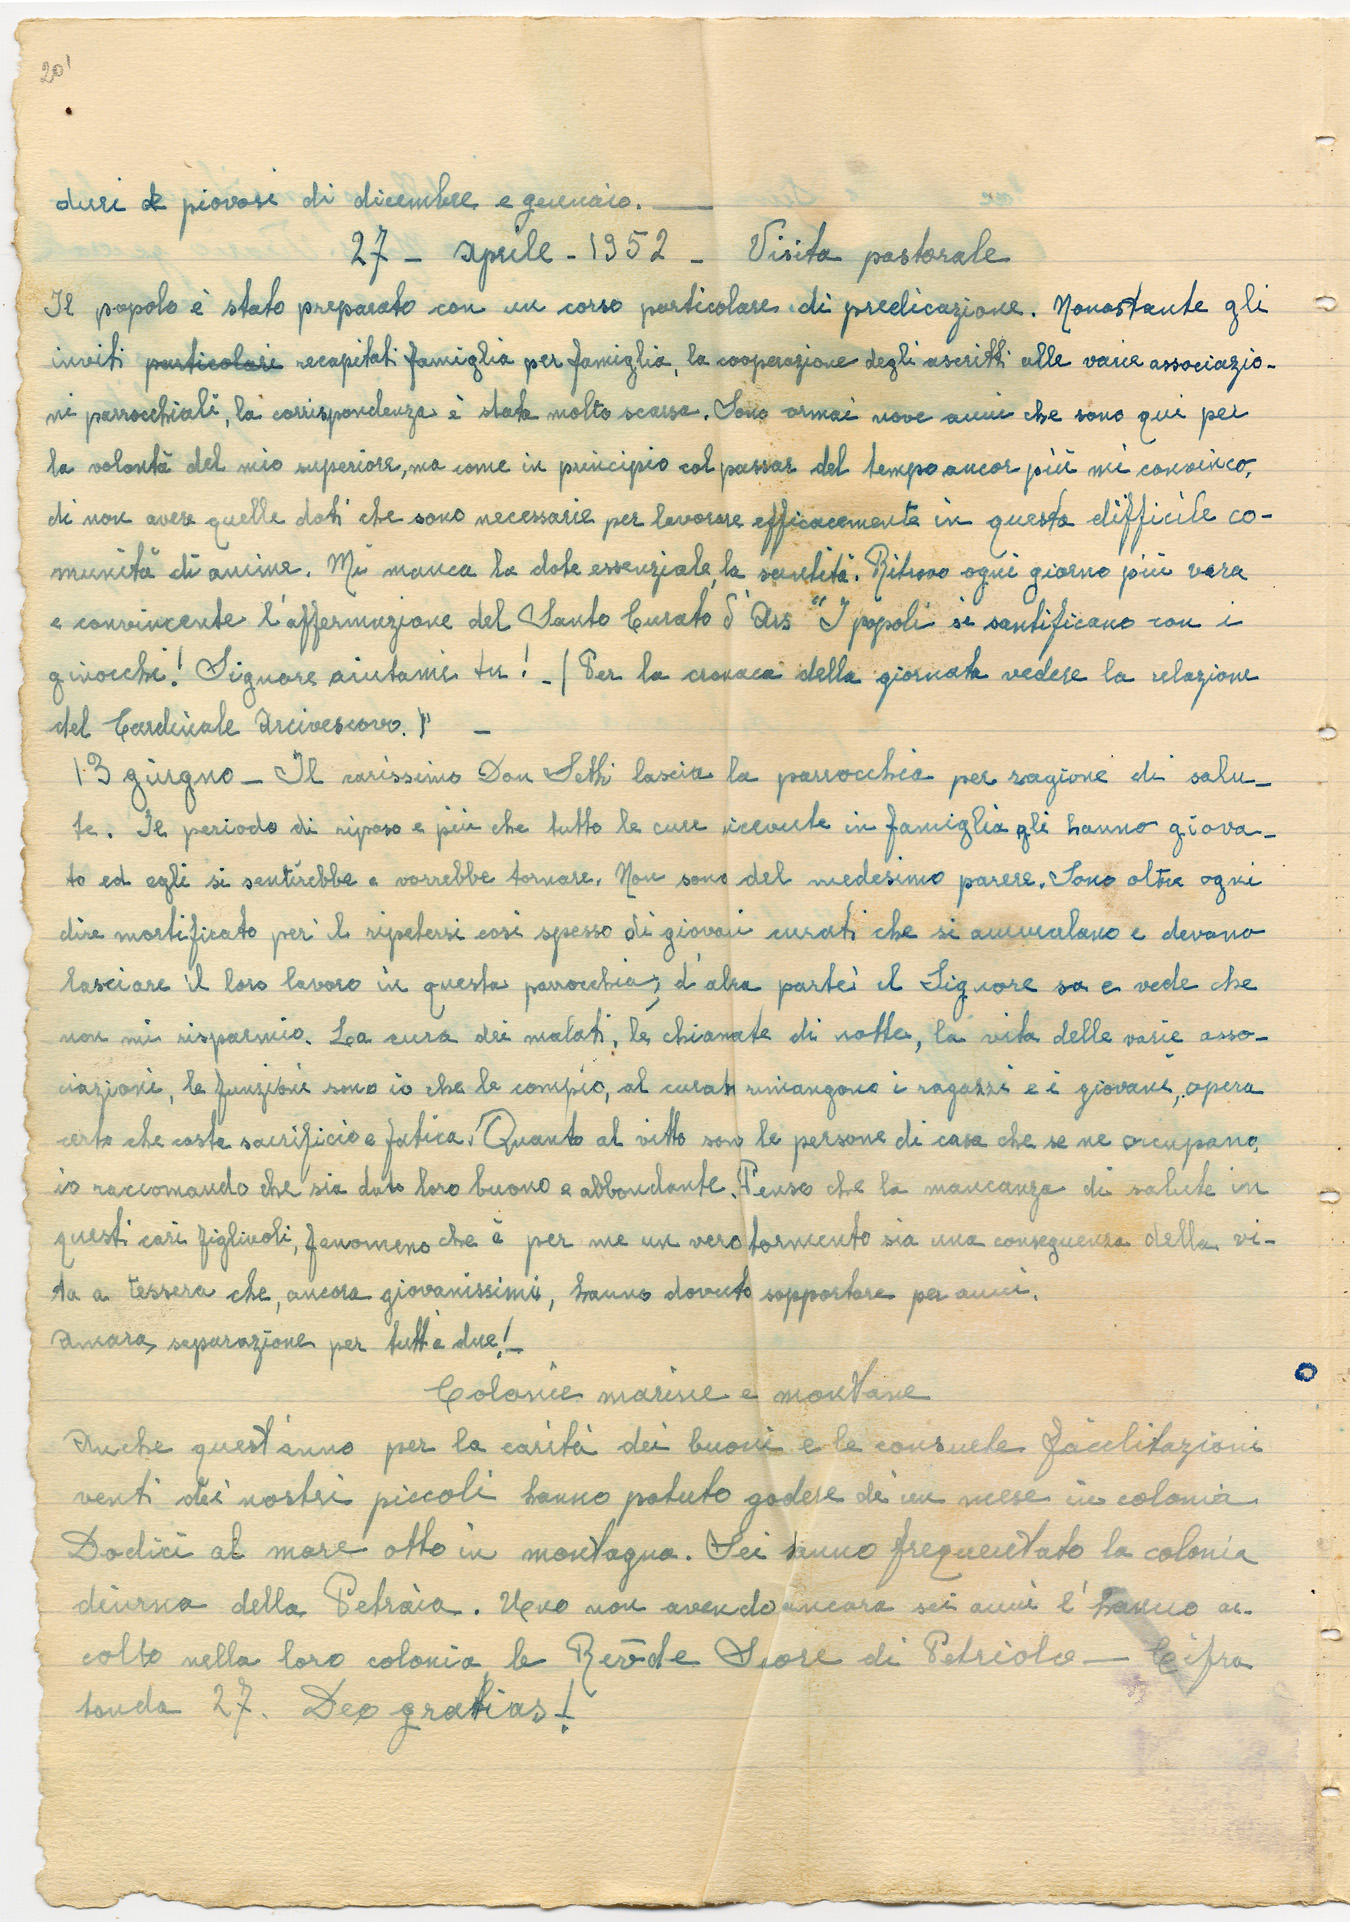 20'
duri e piovosi di dicembre e gennaio. —
27 - Aprile - 1952 - Visita pastorale
Il popolo è stato preparato con un corso particolare di predicazione. Nonostante gli
inviti particolari recapitati famiglia per famiglia, la cooperazione degli ascritti alle varie associazio-
ni parrocchiali, la corrispondenza è stata molto scarsa. Sono ormai nove anni che sono qui per
la volontà del mio superiore, ma come in principio col passar del tempo ancor più mi convinco,
di non avere quelle doti che sono necessarie per lavorare efficacemente in questa difficile co-
munità di anime. Mi manca la dote essenziale, la santità. Ritrovo ogni giorno più vera
e convincente l'affermazione del Santo Curato d'Ars "I popoli si santificano con i
ginocchi! Signore aiutami tu! - (Per la cronaca della giornata vedere la relazione
del Cardinale Arcivescovo.)" -
13 giugno - Il carissimo Don Setti lascia la parrocchia per ragione di salu-
te. Il periodo di riposo e più che tutto le cure ricevute in famiglia gli hanno giova-
to ed egli si sentirebbe e vorrebbe tornare. Non sono del medesimo parere. Sono oltre ogni
dire mortificato per il ripetersi così spesso di giovani curati che si ammalano e devono
lasciare il loro lavoro in questa parrocchia; d'altra parte il Signore sa e vede che
non mi risparmio. La cura dei malati, le chiamate di notte, la vita delle varie asso-
ciazioni, le funzioni sono io che le compio, al curato rimangono i ragazzi e i giovani, opera
certo che costa sacrificio e fatica. Quanto al vitto sono le persone di casa che se ne occupano,
io raccomando che sia dato loro buono e abbondante. Penso che la mancanza di salute in
questi cari figlivoli, fenomeno che è per me un vero tormento sia una conseguenza della vi-
ta a tessera che, ancora giovanissimi, hanno dovuto sopportare per anni.
Amara separazione per tutt'e due! -
Colonie marine e montane
Anche quest'anno per la carità dei buoni e le consuete facilitazioni
venti dei nostri piccoli hanno potuto godere di un mese in colonia
Dodici al mare otto in montagna. Sei hanno frequentato la colonia
diurna della Petraia. Uno non avendo ancora sei anni l'hanno ac-
colto nella loro colonia le Rev̄de Suore di Petriolo — Cifra
tonda 27. Deo gratias!